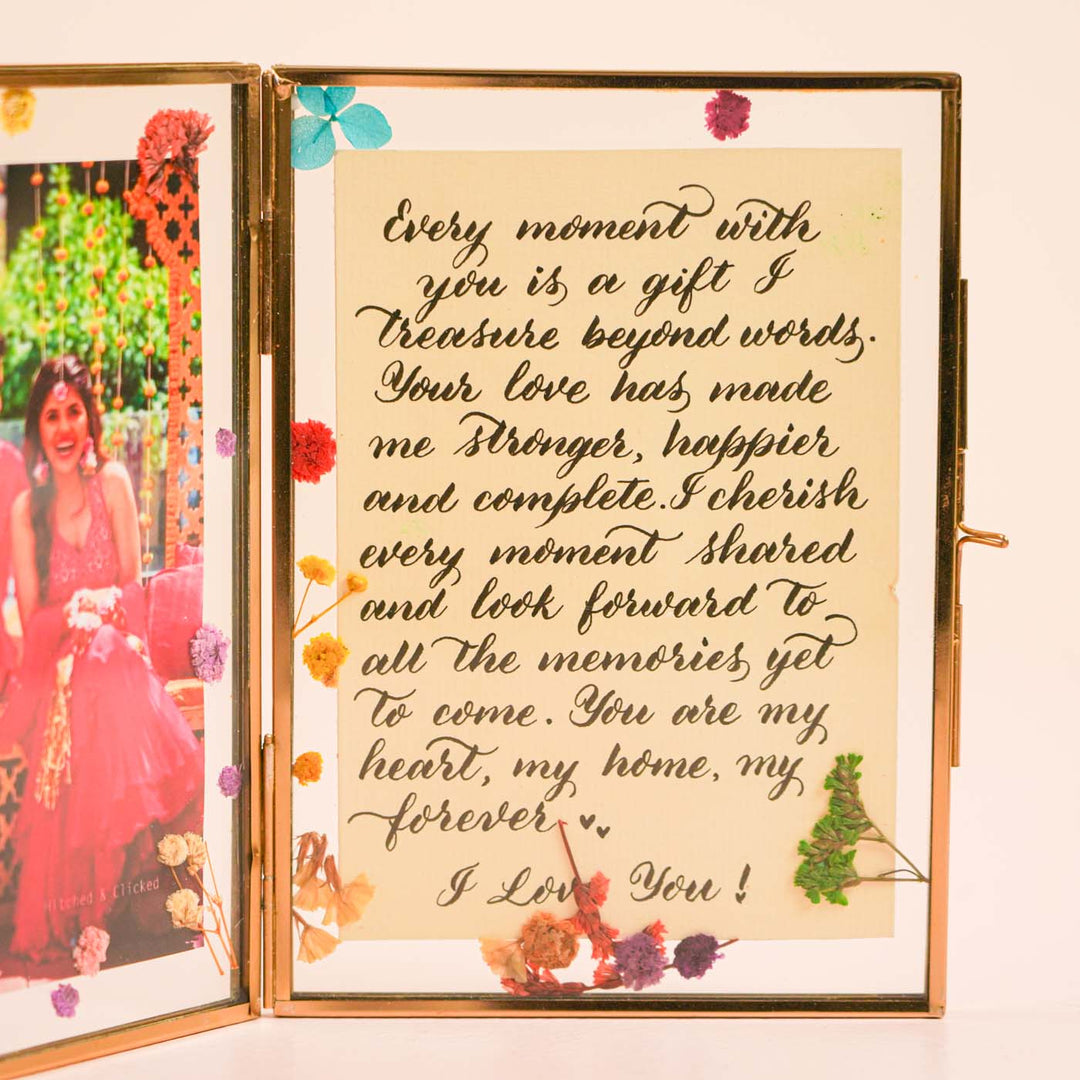 Every moment with
you is a gift I
treasure beyond words.
Your love has made
me stronger, happier
and complete. I cherish
every moment shared
and look forward to
all the memories yet
to come. You are my
heart, my home, my
forever
I Lov You!
Hitched & Clicked